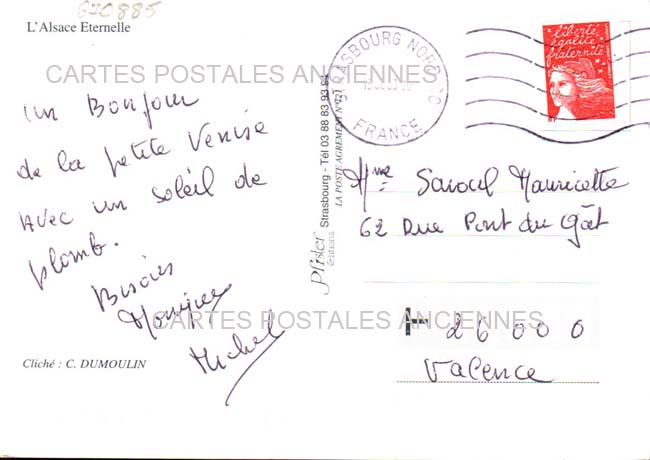 670885
L'Alsace Eternelle
CARTES POSTALES ANCIENNES
Un Bonjour
de la petite Venise
Avec un soleil de
plomb.
Bisous
Monique
Michel
Cliché : C. DUMOULIN
Pfister
éditions
Strasbourg - Tél 03 88 83 93 94
LA POSTE AGREMENT N°
STRASBOURG NORD
FRANCE
liberté
égalité
fraternité
RF
Mme Savoul Mauricette
62 Rue Pont du Gât
26000
Valence
CARTES POSTALES ANCIENNES